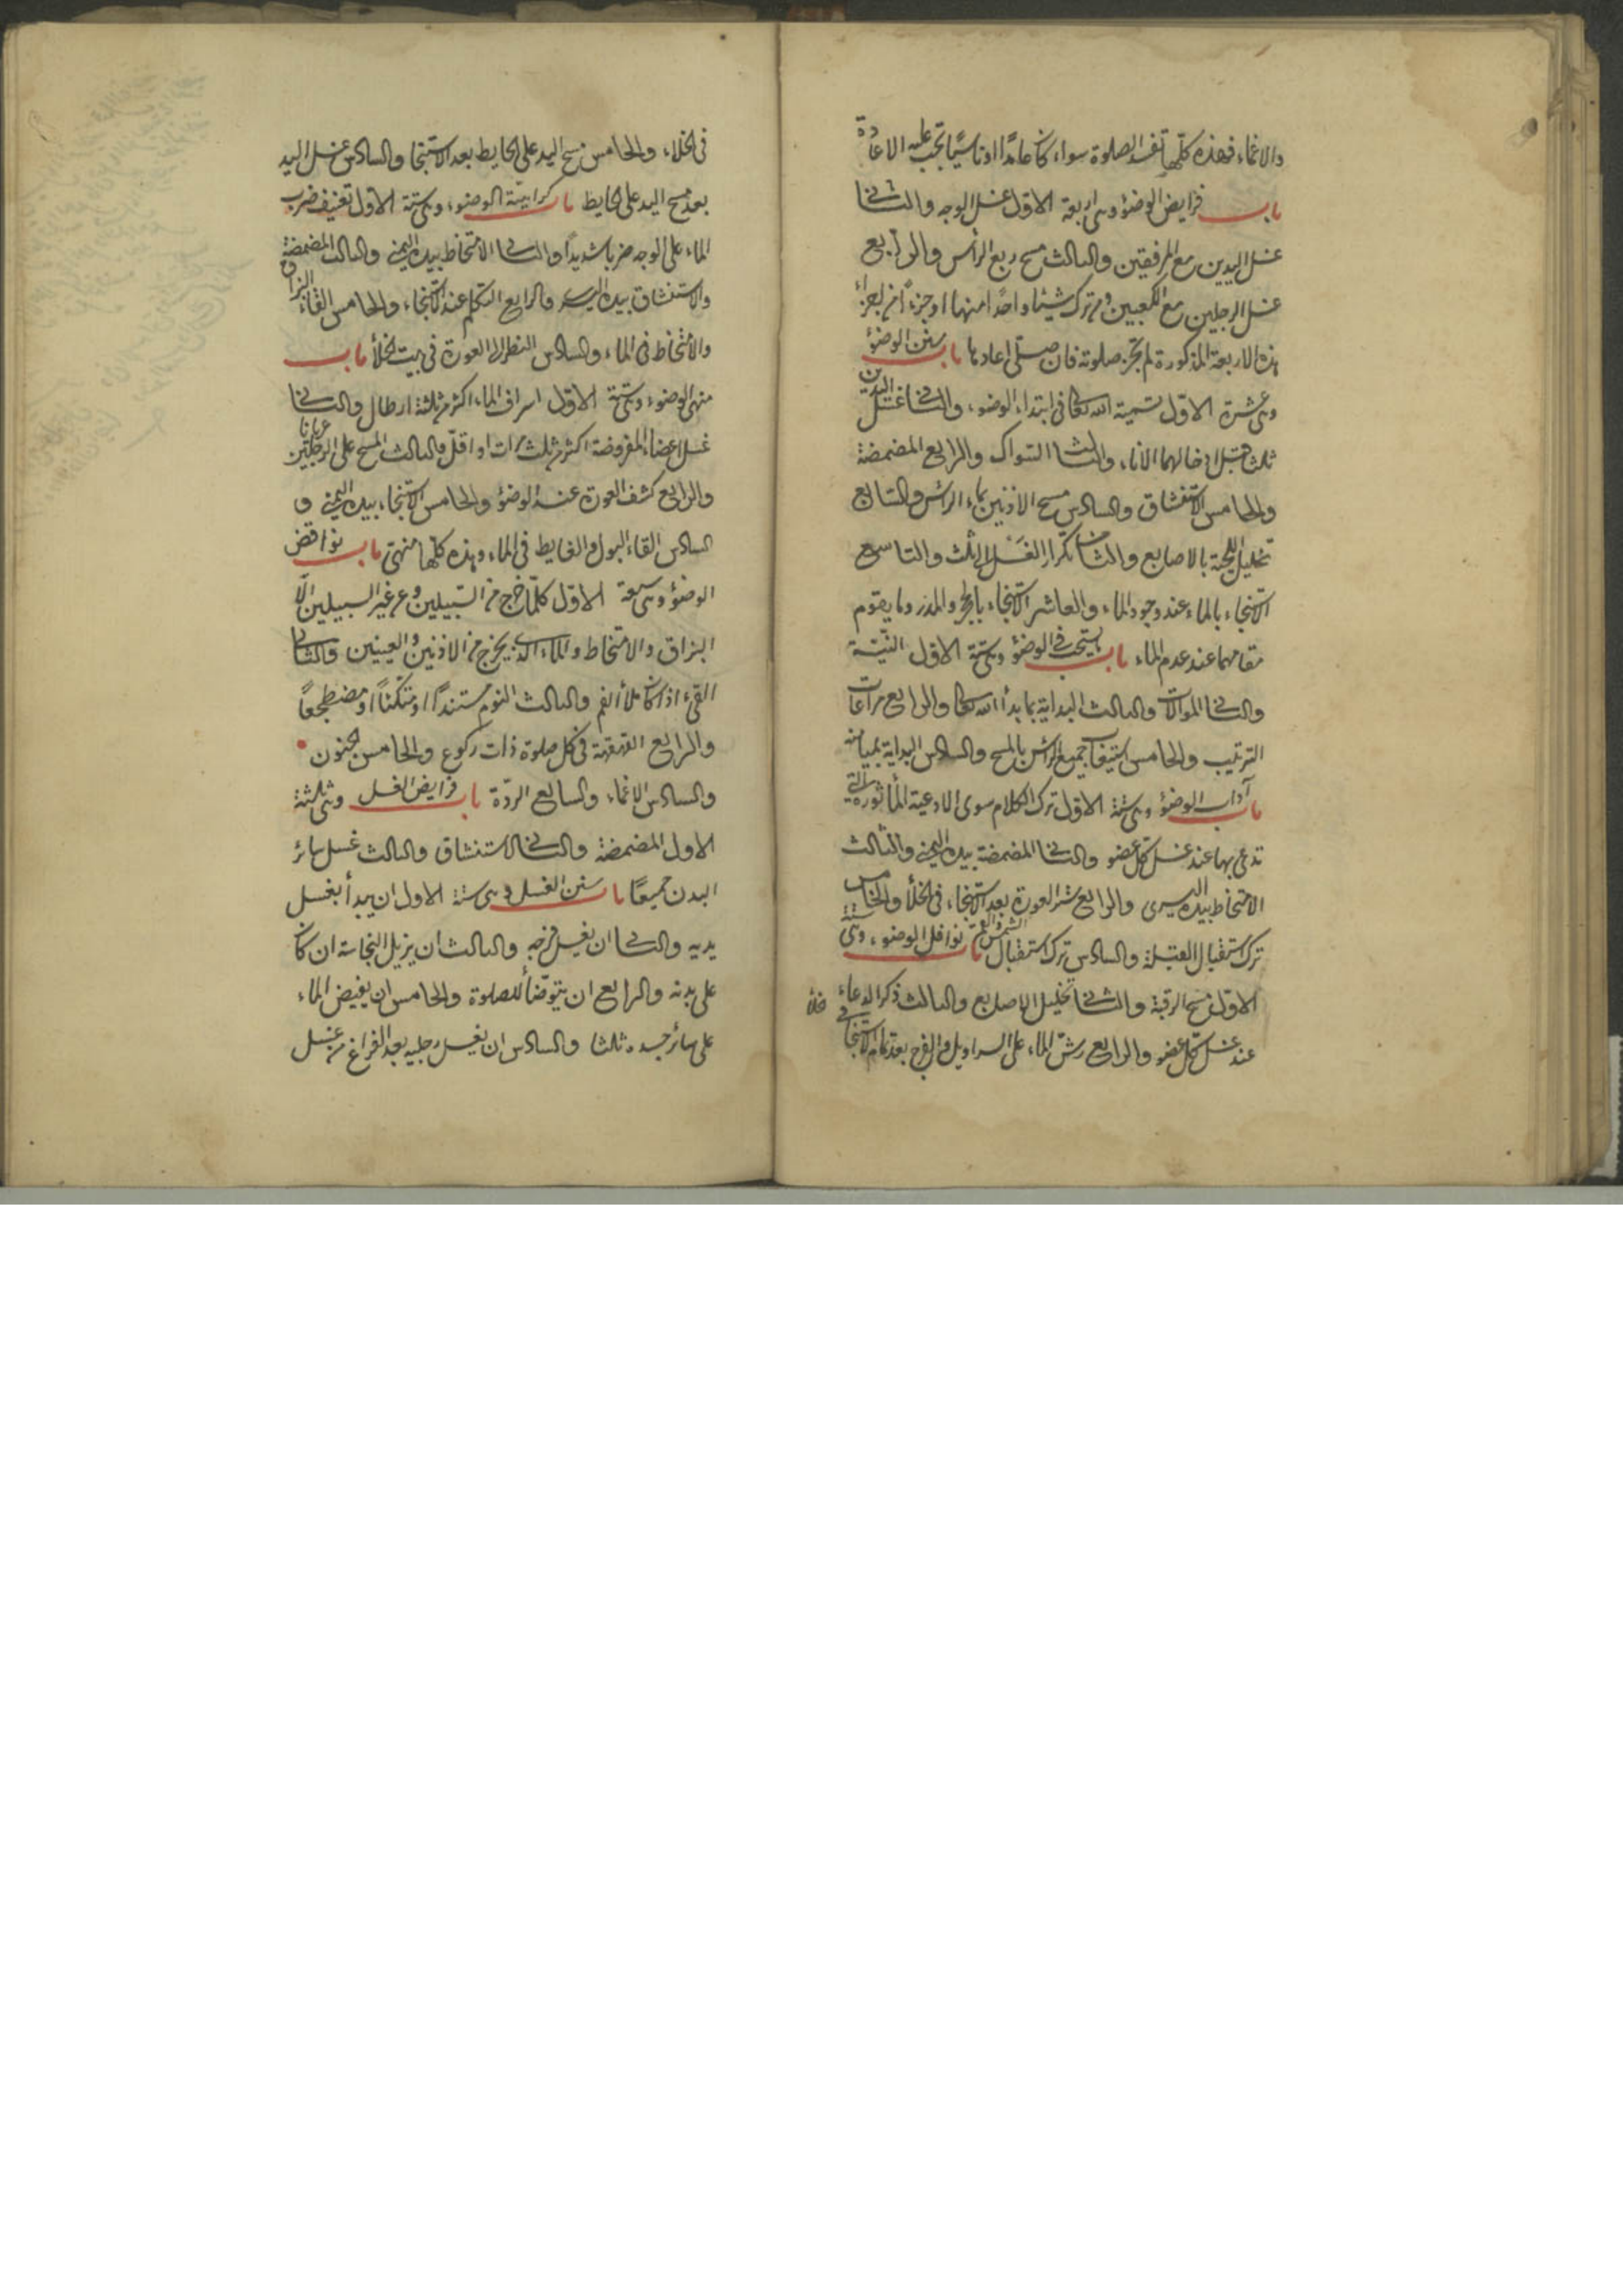 والاغماء فهذه كلها تفسد الصلوة سواء كان عامدًا او ناسيًا تجب عليه الاعادة
باب فرايض الوضوء وهى اربعة الاول غسل الوجه والثانى
غسل اليدين مع المرفقين والثالث مسح ربع الرأس والرابع
غسل الرجلين مع الكعبين ومن ترك شيئا واحدًا منها او جزءًا من اجزاء
هذه الاربعة المذكورة لم تجز صلوته فان صلى اعادها باب سنن الوضوء
وهى عشرة الاول تسمية الله تعالى فى ابتداء الوضوء والثانى غسل اليدين
ثلثا قبل ادخالهما الاناء والثالث السواك والرابع المضمضة
والخامس الاستنشاق والسادس مسح الاذنين بماء الرأس والسابع
تخليل اللحية بالاصابع والثامن تكرار الغسل الى الثلث والتاسع
الاستنجاء بالماء عند وجود الماء والعاشر الاستنجاء بالحجر والمدر وما يقوم
مقامهما عند عدم الماء باب يستحب فى الوضوء وهى ستة الاول النيّة
والثانى الموالات والثالث البداية بما بدأ الله تعالى والرابع مراعات
الترتيب والخامس استيعاب جميع الرأس بالمسح والسادس البداية بميامنه
باب آداب الوضوء وهى ستة الاول ترك الكلام سوى الادعية المأثورة التى
تدعى بها عند غسل كل عضو والثانى المضمضة بيده اليمنى والثالث
الامتخاط بيده اليسرى والرابع ستر العورة بعد الاستنجاء فى الخلأ والخامس
ترك استقبال القبلة والسادس ترك استقبال الشمس والقمر باب نوافل الوضوء وهى ستة
الاول مسح الرقبة والثانى تخليل الاصابع والثالث ذكر الدعاء
عند غسل كل عضو والرابع رشّ الماء على السراويل والفرج بعد تمام الاستنجاء
فى الخلاء والخامس مسح اليد على الحايط بعد الاستنجا والسادس غسل اليد
بعد مسح اليد على الحايط باب كراهيّة الوضوء وهى ستة الاول تعنيف ضرب
الماء على الوجه ضربا شديدًا والثانى الامتخاط بيده اليمنى والثالث المضمضة
والاستنشاق بيده اليسرى والرابع التكلم عند الاستنجاء والخامس القاء البزاق
والامتخاط فى الماء والسادس النظر الى العورة فى بيت الخلأ باب
منهى الوضوء وهى ستة الاول اسراف الماء اكثر من ثلثة ارطال والثانى
غسل اعضاء المفروضة اكثر من ثلث مرات او اقلّ والثالث المسح على الرجلين عريانا
والرابع كشف العورة عند الوضوء والخامس الاستنجاء بيده اليمنى و
السادس القاء البول والغايط فى الماء وهذه كلها منهى باب نواقض
الوضوء وهى سبعة الاول كلما خرج من السبيلين ومن غير السبيلين الّا
البزاق والامتخاط والماء الذى يخرج من الاذنين والعينين والثانى
القئ اذا كان ملأ الفم والثالث النوم مستندًا او متكئًا او مضطجعًا
والرابع القهقهة فى كل صلوة ذات ركوع والخامس الجنون
والسادس الاغماء والسابع الردّة باب فرايض الغسل وهى ثلثة
الاول المضمضة والثانى الاستنشاق والثالث غسل سائر
البدن جميعًا باب سنن الغسل وهى ستة الاول ان يبدأ بغسل
يديه والثانى ان يغسل فرجه والثالث ان يزيل النجاسة ان كان
على بدنه والرابع ان يتوضّأ للصلوة والخامس ان يفيض الماء
على سائر جسده ثلثا والسادس ان يغسل رجليه بعد الفراغ من غسل